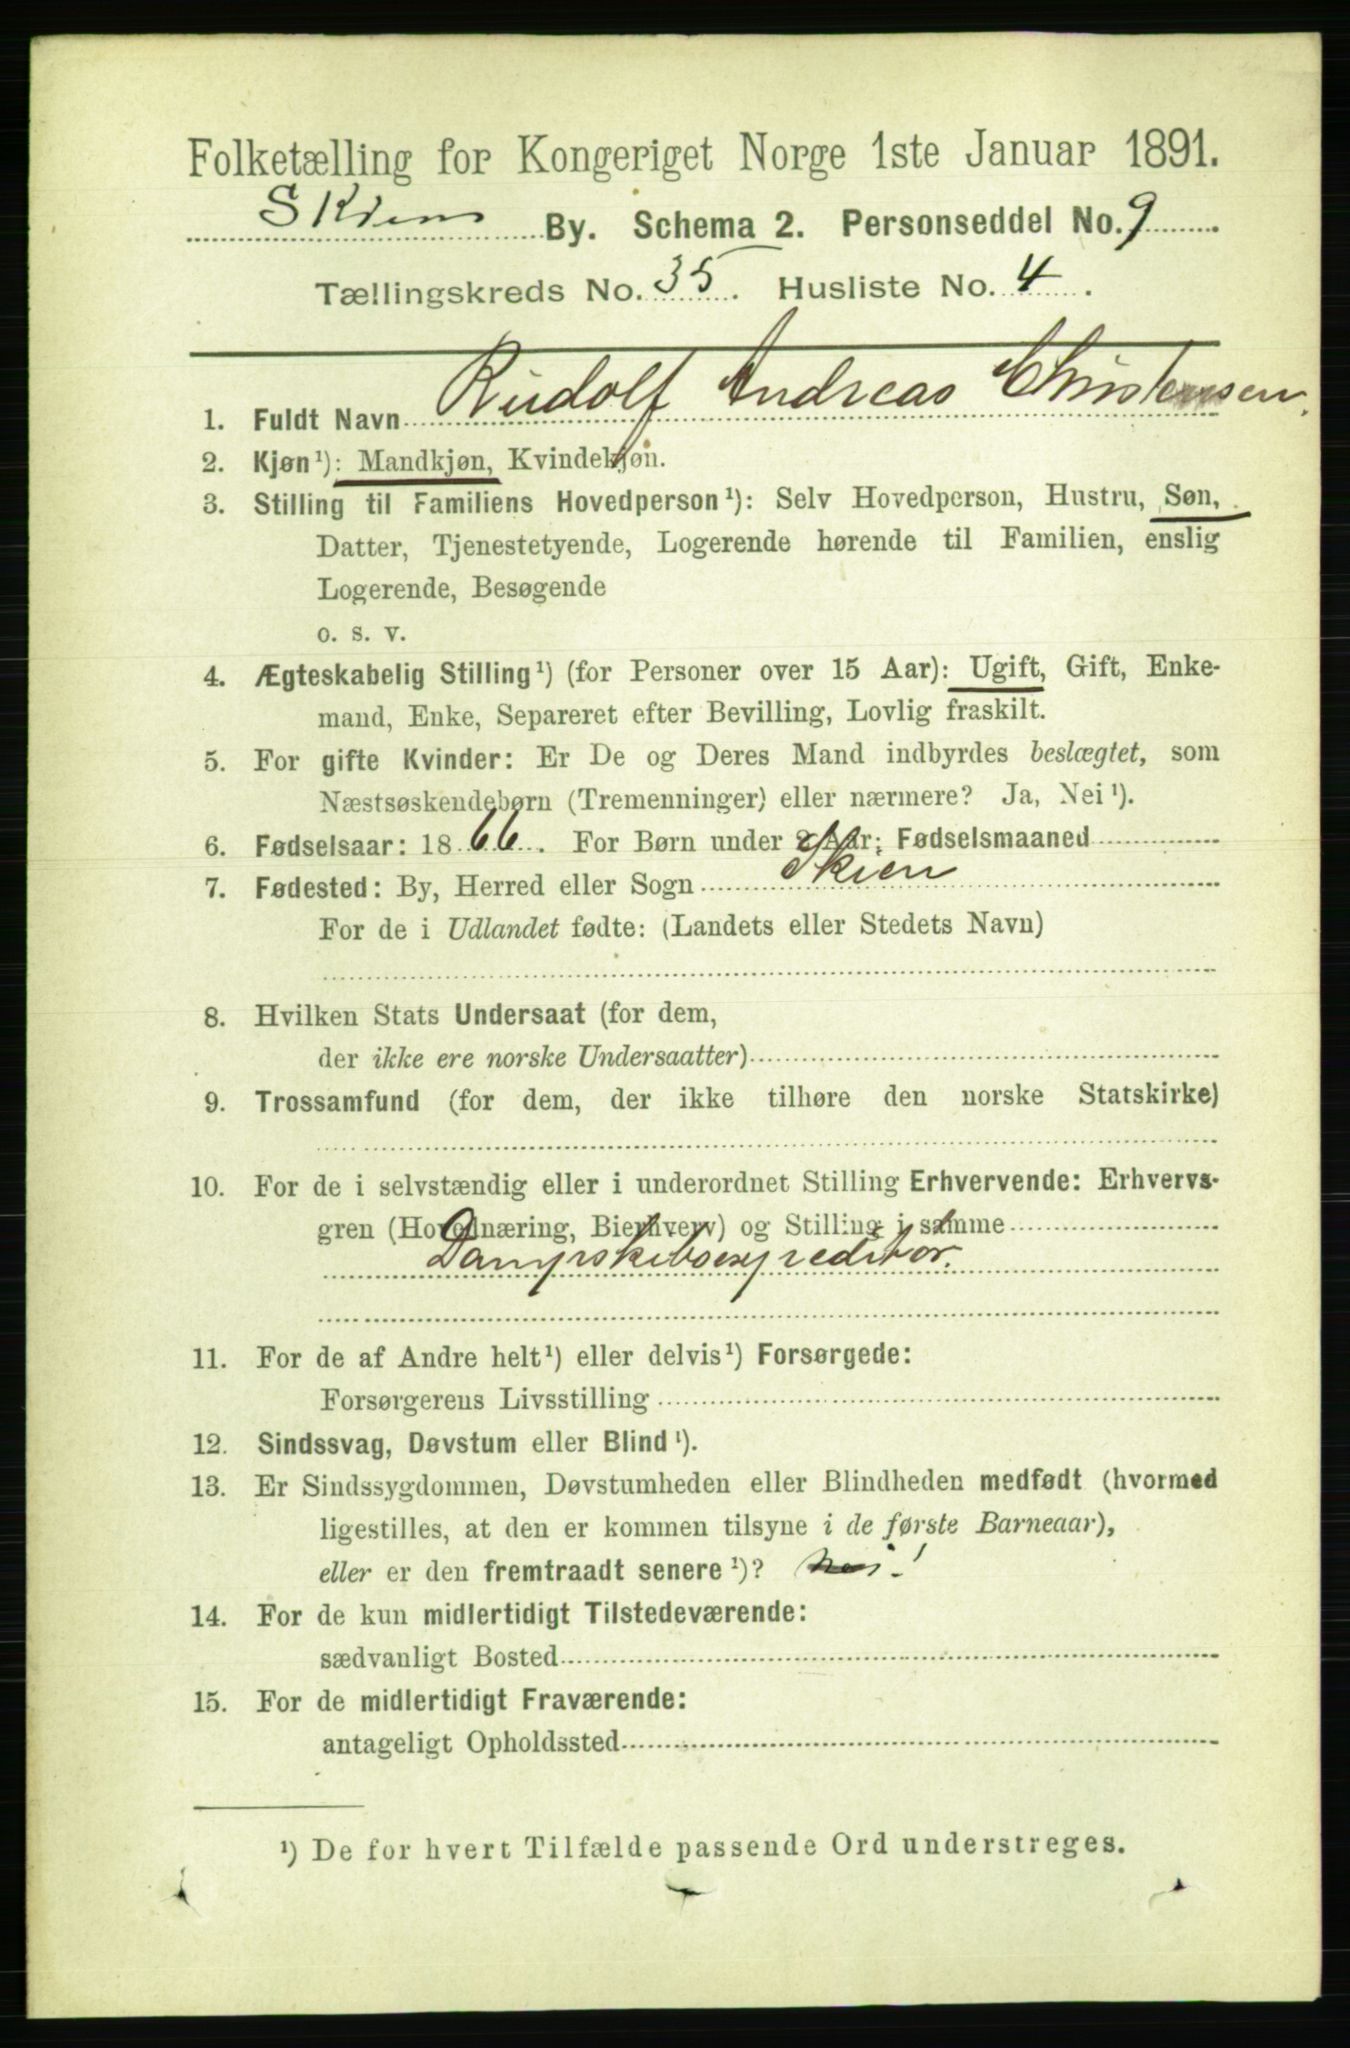 Folketælling for Kongeriget Norge 1ste Januar 1891.
Skiens By. Schema 2. Personseddel No. 9
Tællingskreds No. 35. Husliste No. 4.
1. Fuldt Navn Rudolf Andreas Christensen.
2. Kjøn¹): Mandkjøn, Kvindekjøn.
3. Stilling til Familiens Hovedperson¹): Selv Hovedperson, Hustru, Søn,
Datter, Tjenestetyende, Logerende hørende til Familien, enslig
Logerende, Besøgende
o. s. v.
4. Ægteskabelig Stilling¹) (for Personer over 15 Aar): Ugift, Gift, Enke-
mand, Enke, Separeret efter Bevilling, Lovlig fraskilt.
5. For gifte Kvinder: Er De og Deres Mand indbyrdes beslægtet, som
Næstsøskendebørn (Tremenninger) eller nærmere? Ja, Nei¹).
6. Fødselsaar: 1866. For Børn under 2 Aar: Fødselsmaaned
7. Fødested: By, Herred eller Sogn Skien
For de i Udlandet fødte: (Landets eller Stedets Navn)
8. Hvilken Stats Undersaat (for dem,
der ikke ere norske Undersaatter)
9. Trossamfund (for dem, der ikke tilhøre den norske Statskirke)
10. For de i selvstændig eller i underordnet Stilling Erhvervende: Erhvervs-
gren (Hovednæring, Bierhverv) og Stilling i samme
Dampskibsexpreditør.
11. For de af Andre helt¹) eller delvis¹) Forsørgede:
Forsørgerens Livsstilling
12. Sindssvag, Døvstum eller Blind¹).
13. Er Sindssygdommen, Døvstumheden eller Blindheden medfødt (hvormed
ligestilles, at den er kommen tilsyne i de første Barneaar),
eller er den fremtraadt senere¹)? nei.!
14. For de kun midlertidigt Tilstedeværende:
sædvanligt Bosted
15. For de midlertidigt Fraværende:
antageligt Opholdssted
¹) De for hvert Tilfælde passende Ord understreges.